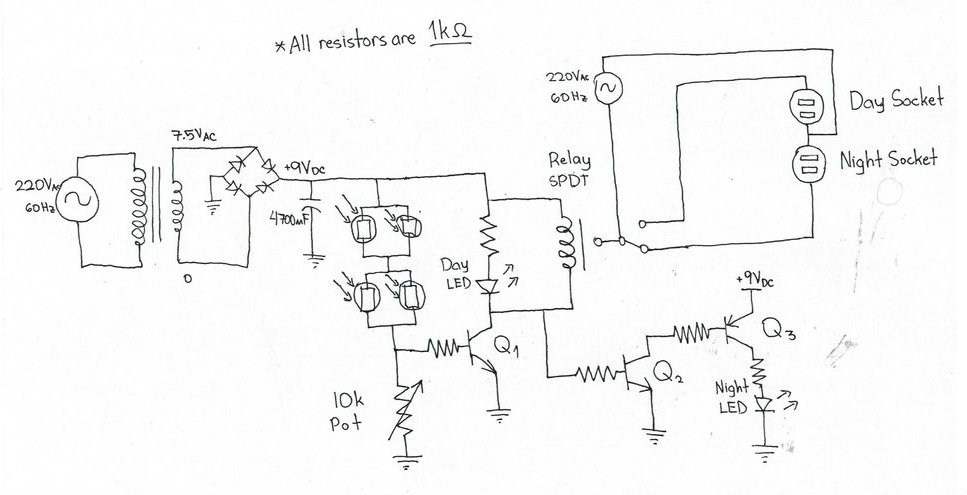 *All resistors are 1kΩ
220VAC
60Hz
7.5VAC
0
+9VDC
4700uF
Day
LED
10k
Pot
Q1
Relay
SPDT
220VAC
60Hz
Day Socket
Night Socket
Q2
+9VDC
Q3
Night
LED